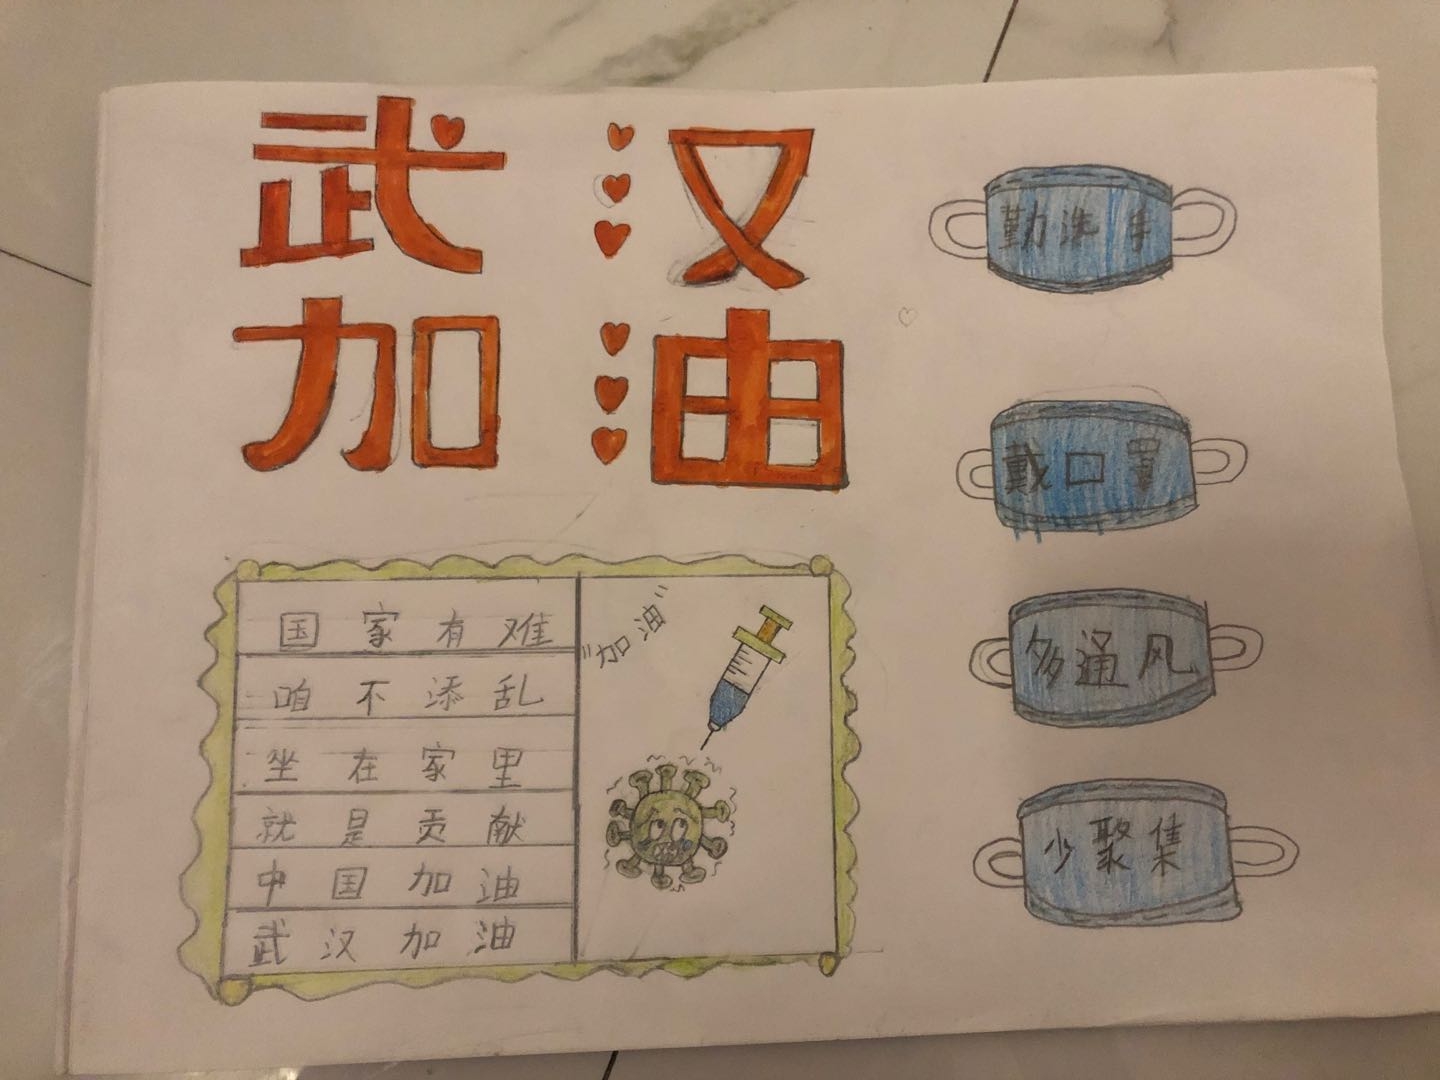 武汉
加油
勤洗手
戴口罩
多通风
少聚集
国家有难
咱不添乱
坐在家里
就是贡献
中国加油
武汉加油
"加油"